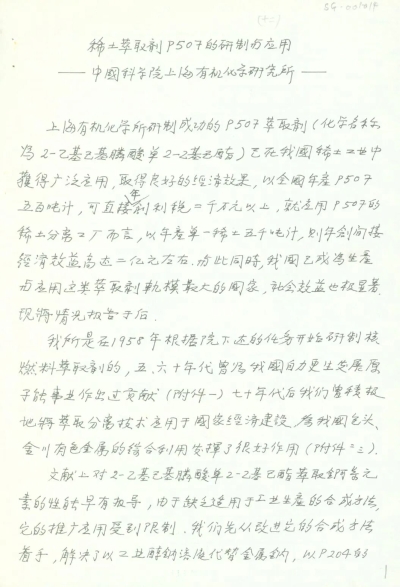 SG-001014
(十一)
稀土萃取剂P507的研制与应用
——中國科学院上海有机化学研究所——
上海有机化学所研制成功的P507萃取剂(化学名称
為2-乙基己基膦酸单2-乙基己酯)已在我國稀土工业中
獲得广泛应用,取得良好的经济效果,以全國年産P507
五百吨计,可直接年创利税二千万元以上,就应用P507的
稀土分离工厂而言,以年産单一稀土五千吨计,则年创间接
经济效益高达二亿元左右.与此同時,我國已成為生産
与应用这类萃取剂規模最大的國家,社会效益也极显著.
现将情况报告于后.
我所是在1958年根据院下达的任务开始研制核
燃料萃取剂的,五、六十年代曾為我國自力更生发展原
子能事业作出过贡献(附件一)七十年代后我们曾積极
地将萃取分离技术应用于國家经济建设,為我國包头、
金川有色金属的综合利用发揮了很好作用(附件二、三).
文献上对2-乙基己基膦酸单2-乙基己酯萃取錒系元
素的性能早有报导,由于缺乏适用于工业生産的合成方法,
它的推广应用受到限制.我们先从改进它的合成方法
着手,解决了以工业醇鈉法代替金属鈉,以P204的
1